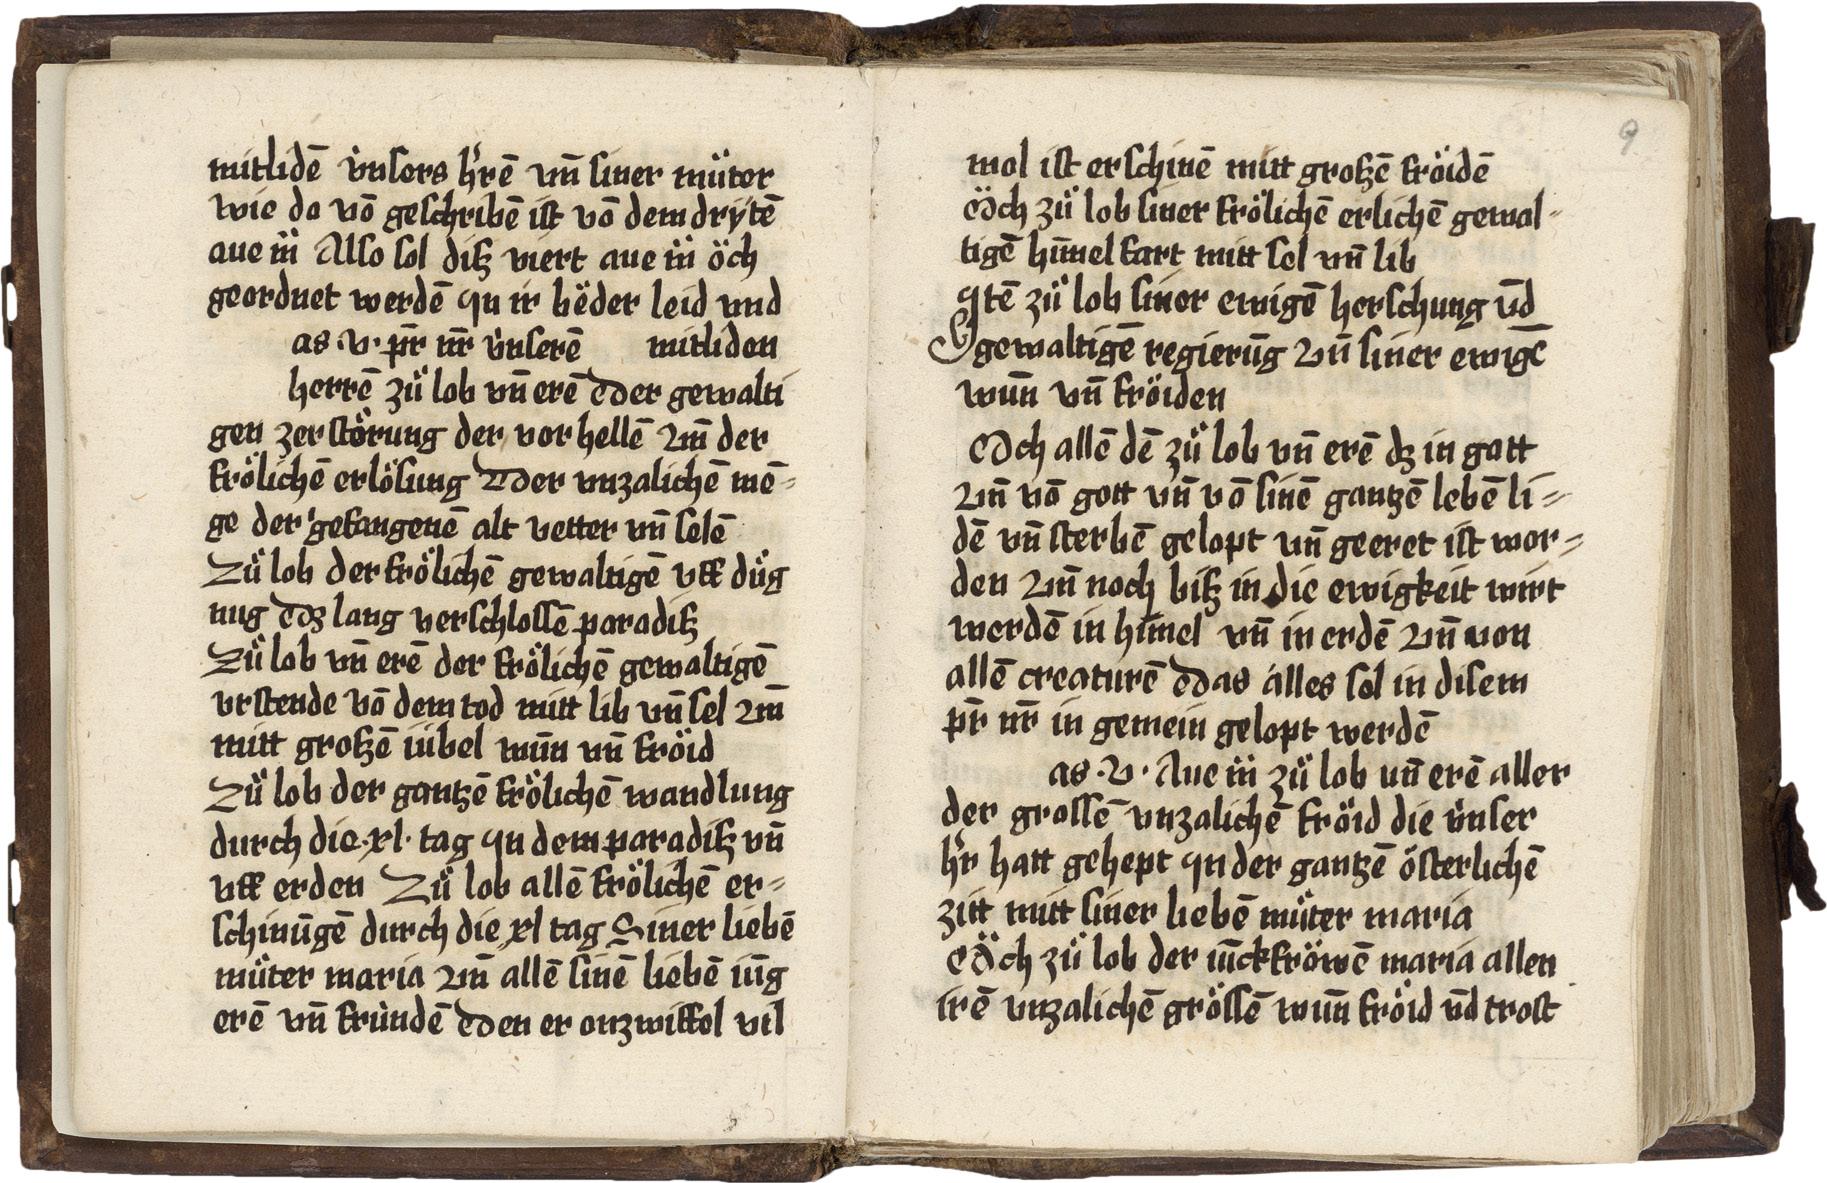 mitlidē v̇nsers hʼrē vn̄ siner mu̎ter
wie do vō geschribē ist vō dem drytē
aue m̈ Also sol diß viert aue m̈ öch
geordnet werdē yn ir bëder leid vnd
as .v. pr̄ nr̄ v̇nserē mitliden
herrē zu̎ lob vn̄ erē der gewalti
gen zerstörung der vor hellē vn̄ der
frölichē erlösung der vnzalichē mē=
ge der gefangenē alt vetter vn̄ selē
Zu̎ lob der frölichē gewaltigē vff du̎g
nug dz lang verschlossē paradiß
Zu̎ lob vn̄ erē der frölichē gewaltigē
vrstende vō dem tod mitt lib vn̄ sel vn̄
mitt großē iübel wūn vn̄ fröid
Zu̎ lob der gantzē frölichē wandlung
durch die .xl. tag yn dem paradiß vn̄
vff erden Zu̎ lob allē frölichē er=
schinūgē durch die xl tag Siner liebē
mu̎ter maria vn̄ allē sinē liebē iūg
erē vn̄ fru̇ndē den er onzwiffel vil
9
mol ist erschinē mitt großē fröidē
Och zu̎ lob siner frölichē erlichē gewal-
tigē him̄el fart mitt sel vn̄ lib
ytē zu̎ lob siner ewigē herschung vn̄d
gewaltigē regierūg vn̄ siner ewigē
wūn vn̄ fröiden
Och allē dē zu̎ lob vn̄ erē dz in gott
vn̄ vō gott vn̄ vō sinē gantzē lebē li=
dē vn̄ sterbē gelopt vn̄ geeret ist wor=
den vn̄ noch biß in die ewigkeit wirt
werdē in him̄el vn̄ in erdē vn̄ von
allē creaturē das alles sol in disem
pr̄ nr̄ in gemein gelopt werdē
as .v. Aue m̈ zu̎ lob vn̄ erē aller
der grossē vnzalichē fröid die v̇nser
hʼr hatt gehept yn der gantzē österlichē
zitt mitt siner liebē mu̎ter maria
Öch zu̎ lob der iūckfröwē maria allen
irē vnzalichē grössē wūn fröid vn̄d trost